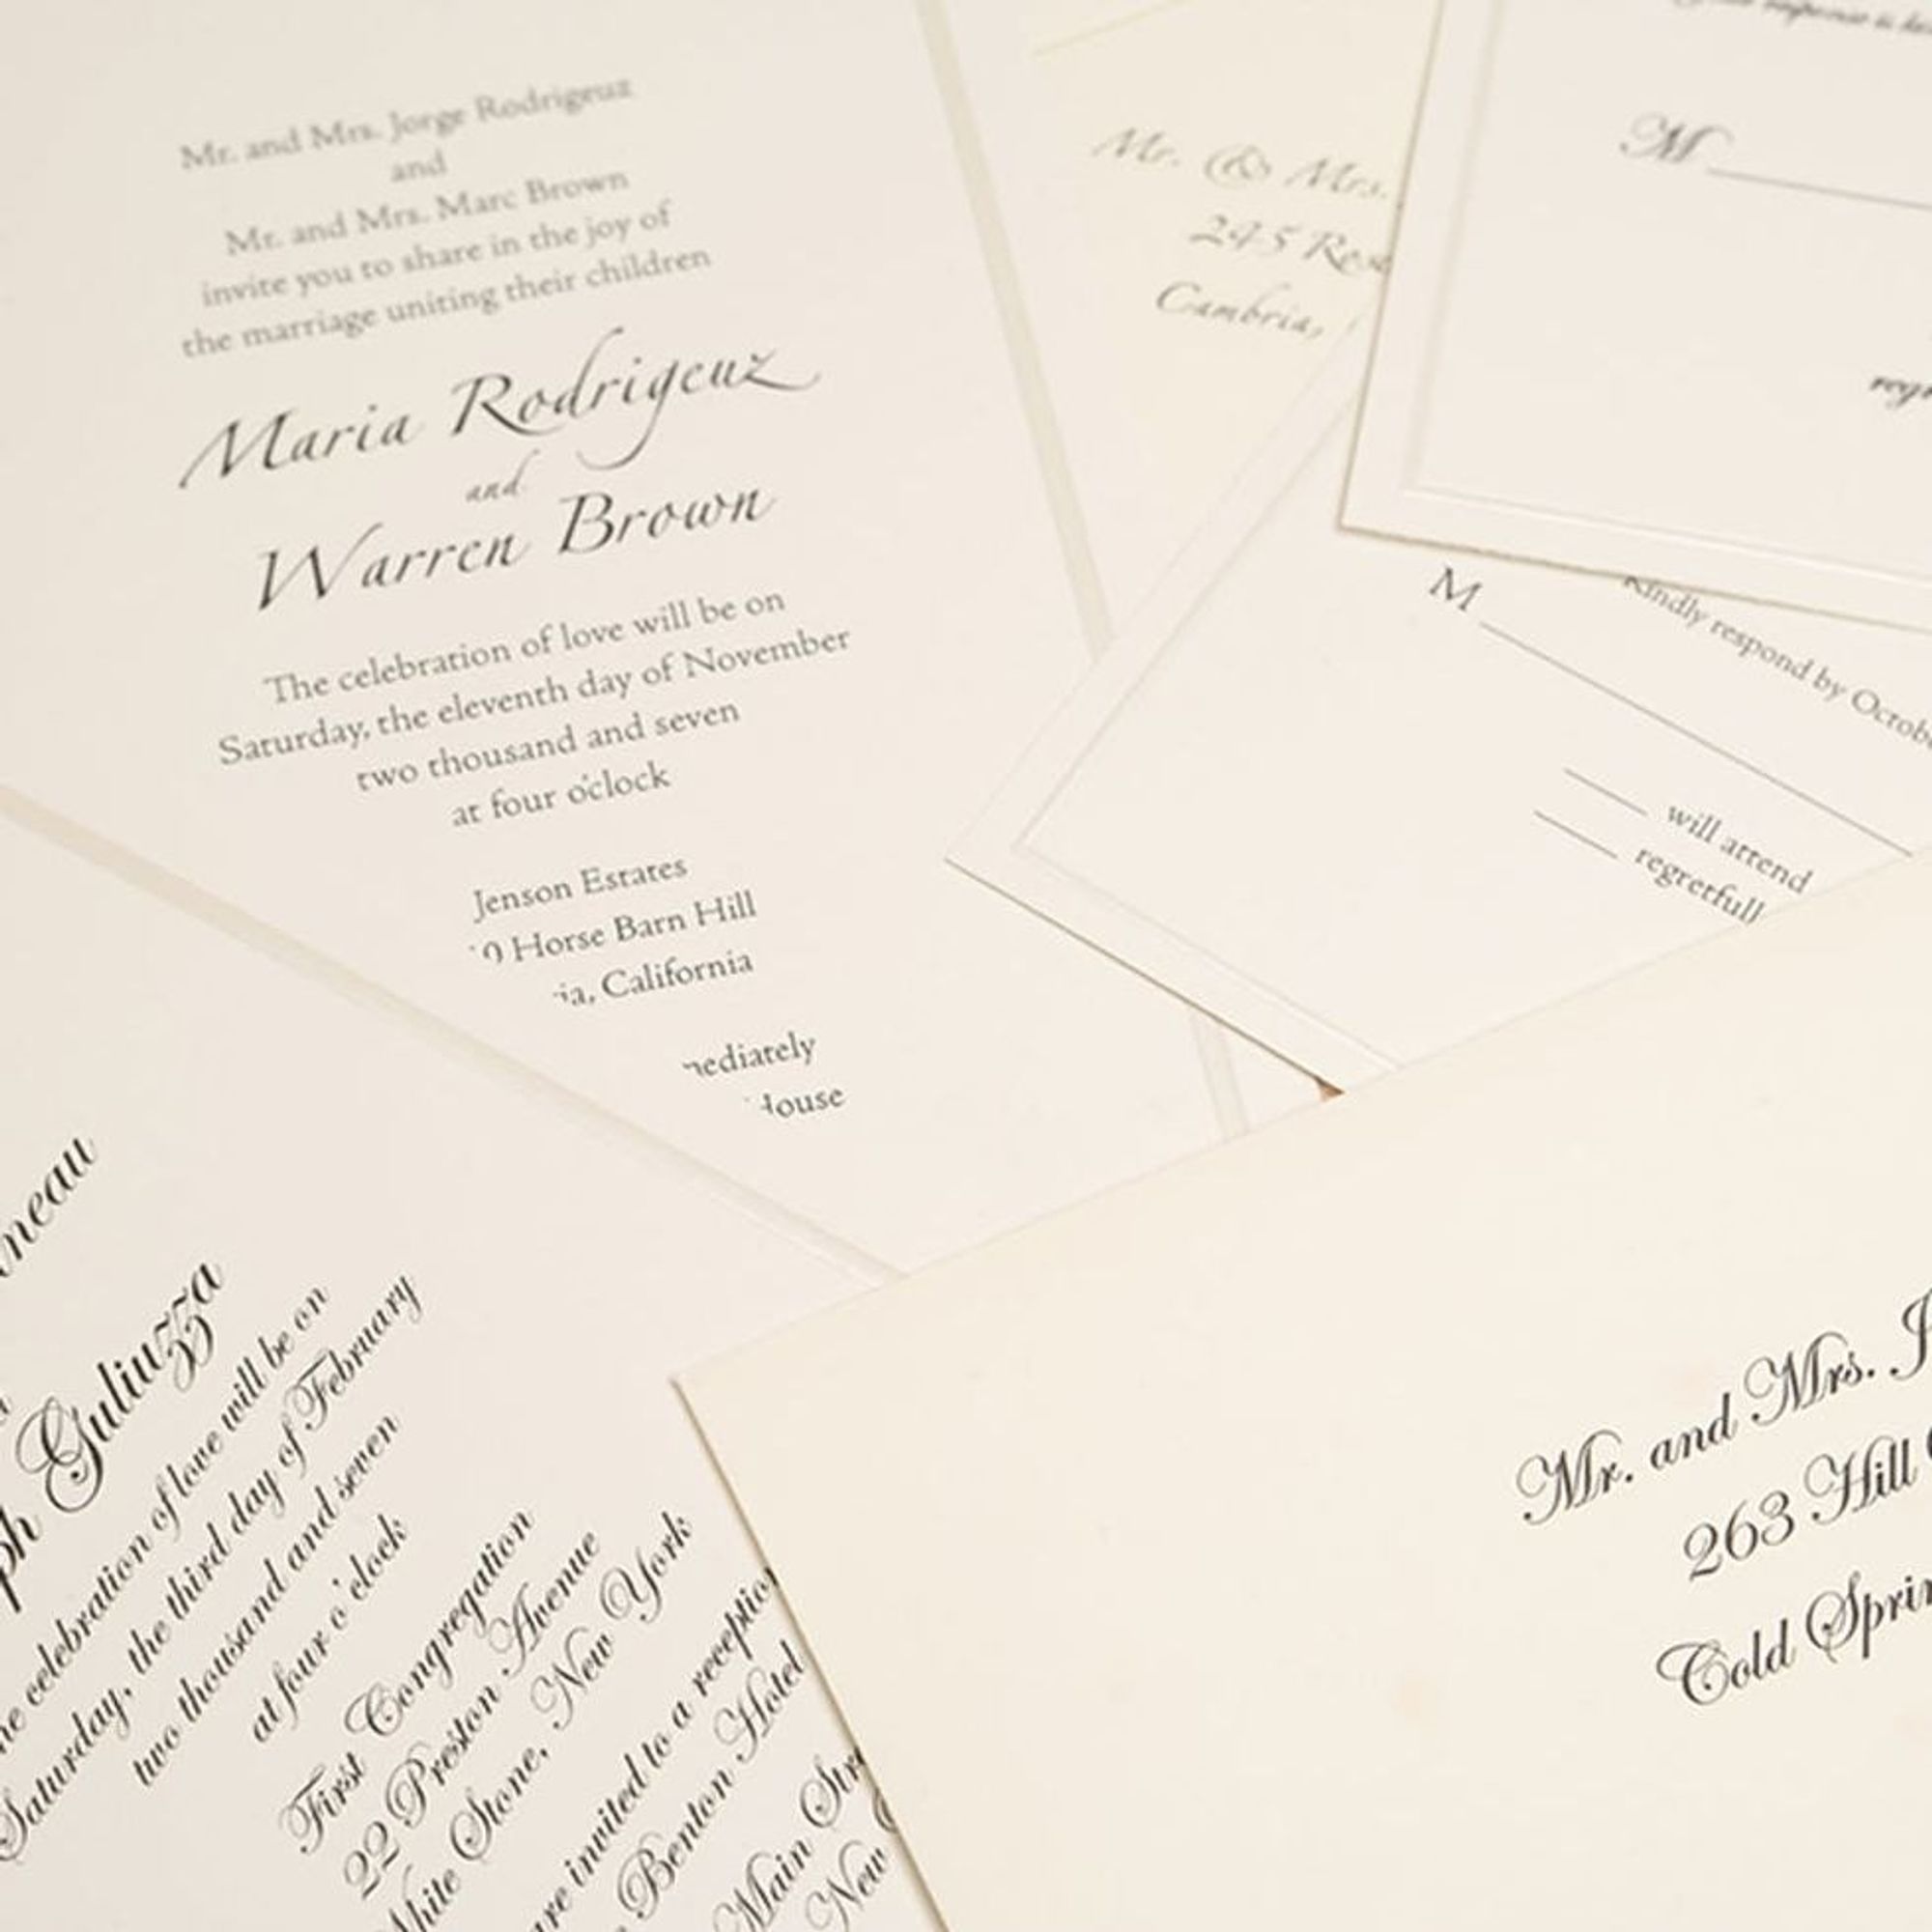 Mr. and Mrs. Jorge Rodrigeuz
and
Mr. and Mrs. Marc Brown
invite you to share in the joy of
the marriage uniting their children
Maria Rodrigeuz
and
Warren Brown
The celebration of love will be on
Saturday, the eleventh day of November
two thousand and seven
at four o'clock
Jenson Estates
Horse Barn Hill
California
Mr. & Mrs.
245
Cambria,
M
M
Kindly respond by
will attend
Guliuzza
celebration of love will be on
Saturday, the third day of February
two thousand and seven
at four o'clock
First Congregation
22 Preston Avenue
Stone, New York
invited to a
Benton Hotel
Main
New
Mr. and Mrs.
263 Hill
Cold